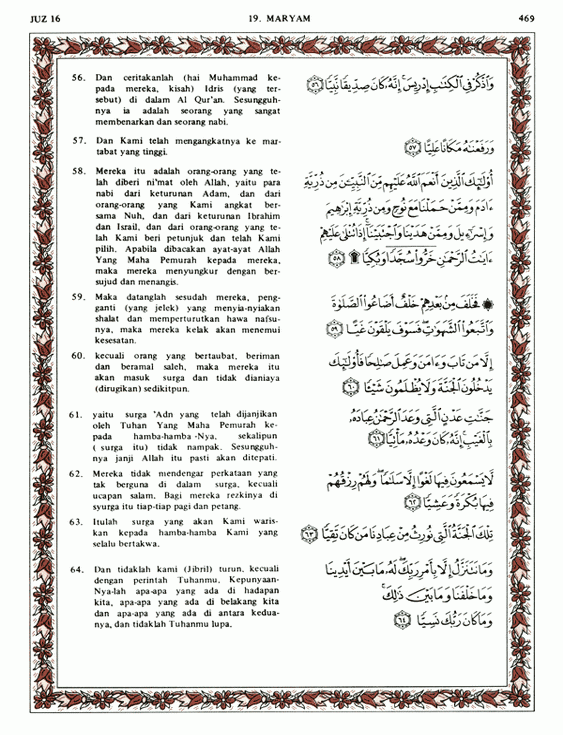 JUZ 16
19. MARYAM
469
56. Dan ceritakanlah (hai Muhammad ke-
pada mereka, kisah) Idris (yang ter-
sebut) di dalam Al Qur'an. Sesungguh-
nya ia adalah seorang yang sangat
membenarkan dan seorang nabi.
وَاذْكُرْ فِي الْكِتَابِ إِدْرِيسَ إِنَّهُ كَانَ صِدِّيقًا نَّبِيًّا ٥٦
57. Dan Kami telah mengangkatnya ke mar-
tabat yang tinggi.
وَرَفَعْنَاهُ مَكَانًا عَلِيًّا ٥٧
58. Mereka itu adalah orang-orang yang te-
lah diberi ni'mat oleh Allah, yaitu para
nabi dari keturunan Adam, dan dari
orang-orang yang Kami angkat ber-
sama Nuh, dan dari keturunan Ibrahim
dan Israil, dan dari orang-orang yang te-
lah Kami beri petunjuk dan telah Kami
pilih. Apabila dibacakan ayat-ayat Allah
Yang Maha Pemurah kepada mereka,
maka mereka menyungkur dengan ber-
sujud dan menangis.
أُولَٰئِكَ الَّذِينَ أَنْعَمَ اللَّهُ عَلَيْهِم مِّنَ النَّبِيِّينَ مِن ذُرِّيَّةِ
ءَادَمَ وَمِمَّنْ حَمَلْنَا مَعَ نُوحٍ وَمِن ذُرِّيَّةِ إِبْرَاهِيمَ
وَإِسْرَاءِيلَ وَمِمَّنْ هَدَيْنَا وَاجْتَبَيْنَا إِذَا تُتْلَىٰ عَلَيْهِمْ
ءَايَاتُ الرَّحْمَٰنِ خَرُّوا سُجَّدًا وَبُكِيًّا ۩ ٥٨
59. Maka datanglah sesudah mereka, peng-
ganti (yang jelek) yang menyia-nyiakan
shalat dan memperturutkan hawa nafsu-
nya, maka mereka kelak akan menemui
kesesatan.
۞ فَخَلَفَ مِن بَعْدِهِمْ خَلْفٌ أَضَاعُوا الصَّلَوٰةَ
وَاتَّبَعُوا الشَّهَوَاتِ فَسَوْفَ يَلْقَوْنَ غَيًّا ٥٩
60. kecuali orang yang bertaubat, beriman
dan beramal saleh, maka mereka itu
akan masuk surga dan tidak dianiaya
(dirugikan) sedikitpun.
إِلَّا مَن تَابَ وَءَامَنَ وَعَمِلَ صَالِحًا فَأُولَٰئِكَ
يَدْخُلُونَ الْجَنَّةَ وَلَا يُظْلَمُونَ شَيْئًا ٦٠
61. yaitu surga 'Adn yang telah dijanjikan
oleh Tuhan Yang Maha Pemurah ke-
pada hamba-hamba -Nya, sekalipun
( surga itu) tidak nampak. Sesungguh-
nya janji Allah itu pasti akan ditepati.
جَنَّاتِ عَدْنٍ الَّتِي وَعَدَ الرَّحْمَٰنُ عِبَادَهُ
بِالْغَيْبِ إِنَّهُ كَانَ وَعْدُهُ مَأْتِيًّا ٦١
62. Mereka tidak mendengar perkataan yang
tak berguna di dalam surga, kecuali
ucapan salam. Bagi mereka rezkinya di
syurga itu tiap-tiap pagi dan petang.
لَّا يَسْمَعُونَ فِيهَا لَغْوًا إِلَّا سَلَامًا وَلَهُمْ رِزْقُهُمْ
فِيهَا بُكْرَةً وَعَشِيًّا ٦٢
63. Itulah surga yang akan Kami waris-
kan kepada hamba-hamba Kami yang
selalu bertakwa.
تِلْكَ الْجَنَّةُ الَّتِي نُورِثُ مِنْ عِبَادِنَا مَن كَانَ تَقِيًّا ٦٣
64. Dan tidaklah kami (Jibril) turun, kecuali
dengan perintah Tuhanmu. Kepunyaan-
Nya-lah apa-apa yang ada di hadapan
kita, apa-apa yang ada di belakang kita
dan apa-apa yang ada di antara kedua-
nya, dan tidaklah Tuhanmu lupa.
وَمَا نَتَنَزَّلُ إِلَّا بِأَمْرِ رَبِّكَ لَهُ مَا بَيْنَ أَيْدِينَا
وَمَا خَلْفَنَا وَمَا بَيْنَ ذَٰلِكَ
وَمَا كَانَ رَبُّكَ نَسِيًّا ٦٤